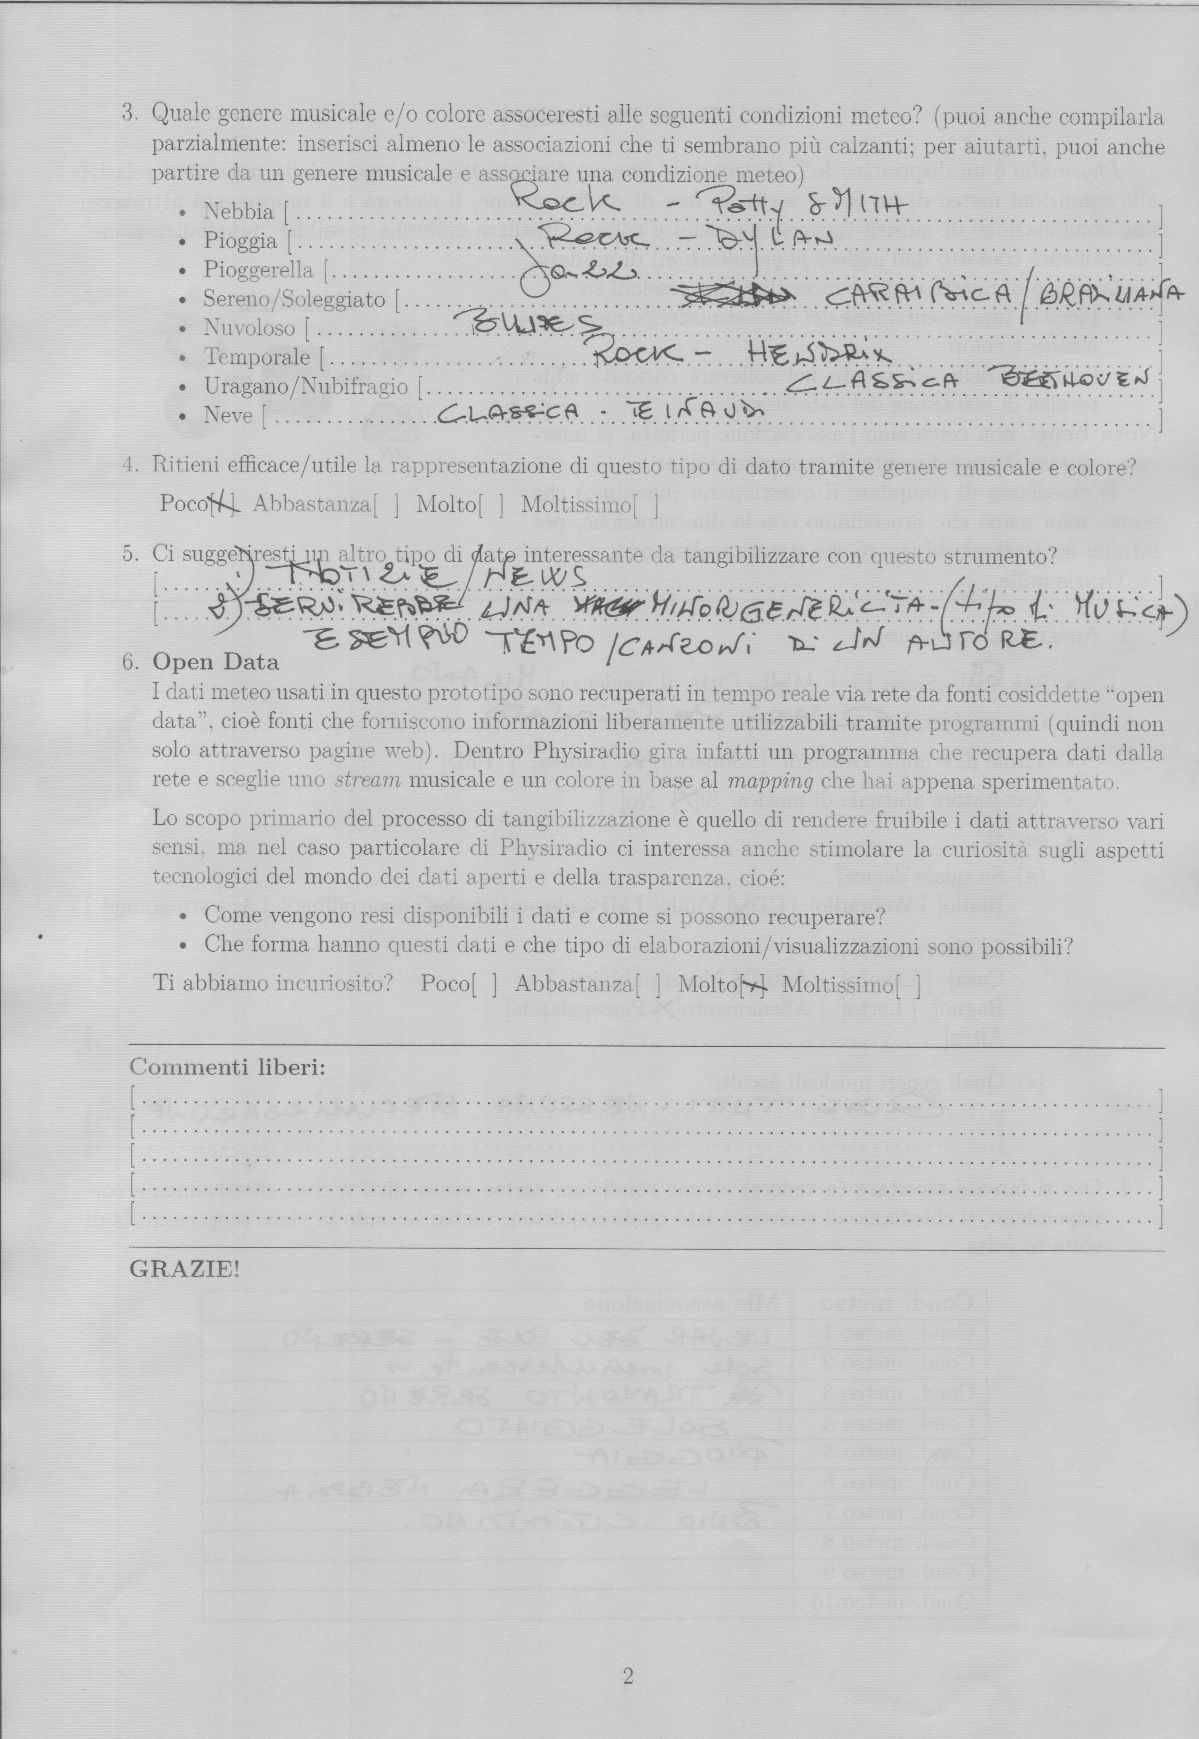 3. Quale genere musicale e/o colore assoceresti alle seguenti condizioni meteo? (puoi anche compilarla
parzialmente: inserisci almeno le associazioni che ti sembrano più calzanti; per aiutarti, puoi anche
partire da un genere musicale e associare una condizione meteo)
• Nebbia [ Rock - Patty SMITH ]
• Pioggia [ Rock - DYLAN ]
• Pioggerella [ Jazz ]
• Sereno/Soleggiato [ CARAIBICA / BRASILIANA
• Nuvoloso [ BLUES ]
• Temporale [ Rock - HENDRIX ]
• Uragano/Nubifragio [ CLASSICA BEETHOVEN ]
• Neve [ CLASSICA - EINAUDI ]
4. Ritieni efficace/utile la rappresentazione di questo tipo di dato tramite genere musicale e colore?
Poco[X] Abbastanza[ ] Molto[ ] Moltissimo[ ]
5. Ci suggeriresti un altro tipo di dato interessante da tangibilizzare con questo strumento?
[ 1) NOTIZIE / NEWS ]
[ 2) SERVIREBBE UNA MINOR GENERICITA - (tipo di MUSICA) ]
ESEMPIO TEMPO / CANZONI DI UN AUTORE.
6. Open Data
I dati meteo usati in questo prototipo sono recuperati in tempo reale via rete da fonti cosiddette “open
data”, cioè fonti che forniscono informazioni liberamente utilizzabili tramite programmi (quindi non
solo attraverso pagine web). Dentro Physiradio gira infatti un programma che recupera dati dalla
rete e sceglie uno stream musicale e un colore in base al mapping che hai appena sperimentato.
Lo scopo primario del processo di tangibilizzazione è quello di rendere fruibile i dati attraverso vari
sensi, ma nel caso particolare di Physiradio ci interessa anche stimolare la curiosità sugli aspetti
tecnologici del mondo dei dati aperti e della trasparenza, cioé:
• Come vengono resi disponibili i dati e come si possono recuperare?
• Che forma hanno questi dati e che tipo di elaborazioni/visualizzazioni sono possibili?
Ti abbiamo incuriosito? Poco[ ] Abbastanza[ ] Molto[X] Moltissimo[ ]
Commenti liberi:
GRAZIE!
2